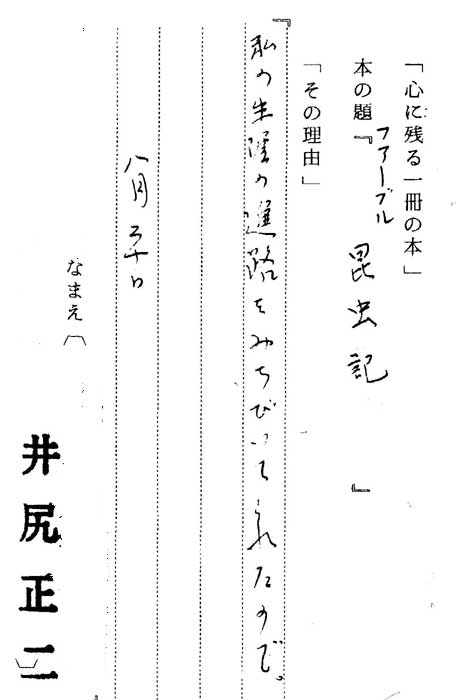 「心に残る一冊の本」
本の題『ファーブル 昆虫記』
「その理由」
『私の生涯の進路をみちびいてくれたので。
八月三十日
なまえ（井尻正二）